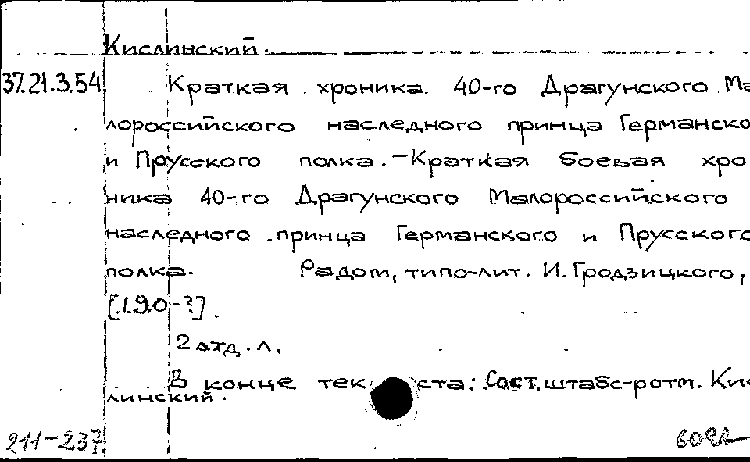 Кислинский.
37.21.3.54 Краткая хроника 40-го Драгунского Ма
лороссийского наследного принца Германско
и Прусского полка.-Краткая боевая хро
ника 40-го Драгунского Малороссийского
наследного принца Германского и Прусского
полка. Радом, типо-лит. И.Гродзицкого,
[190-?]
2 отд. л.
В конце текста: Сост. штабс-ротм. Кис
линский.
211-237